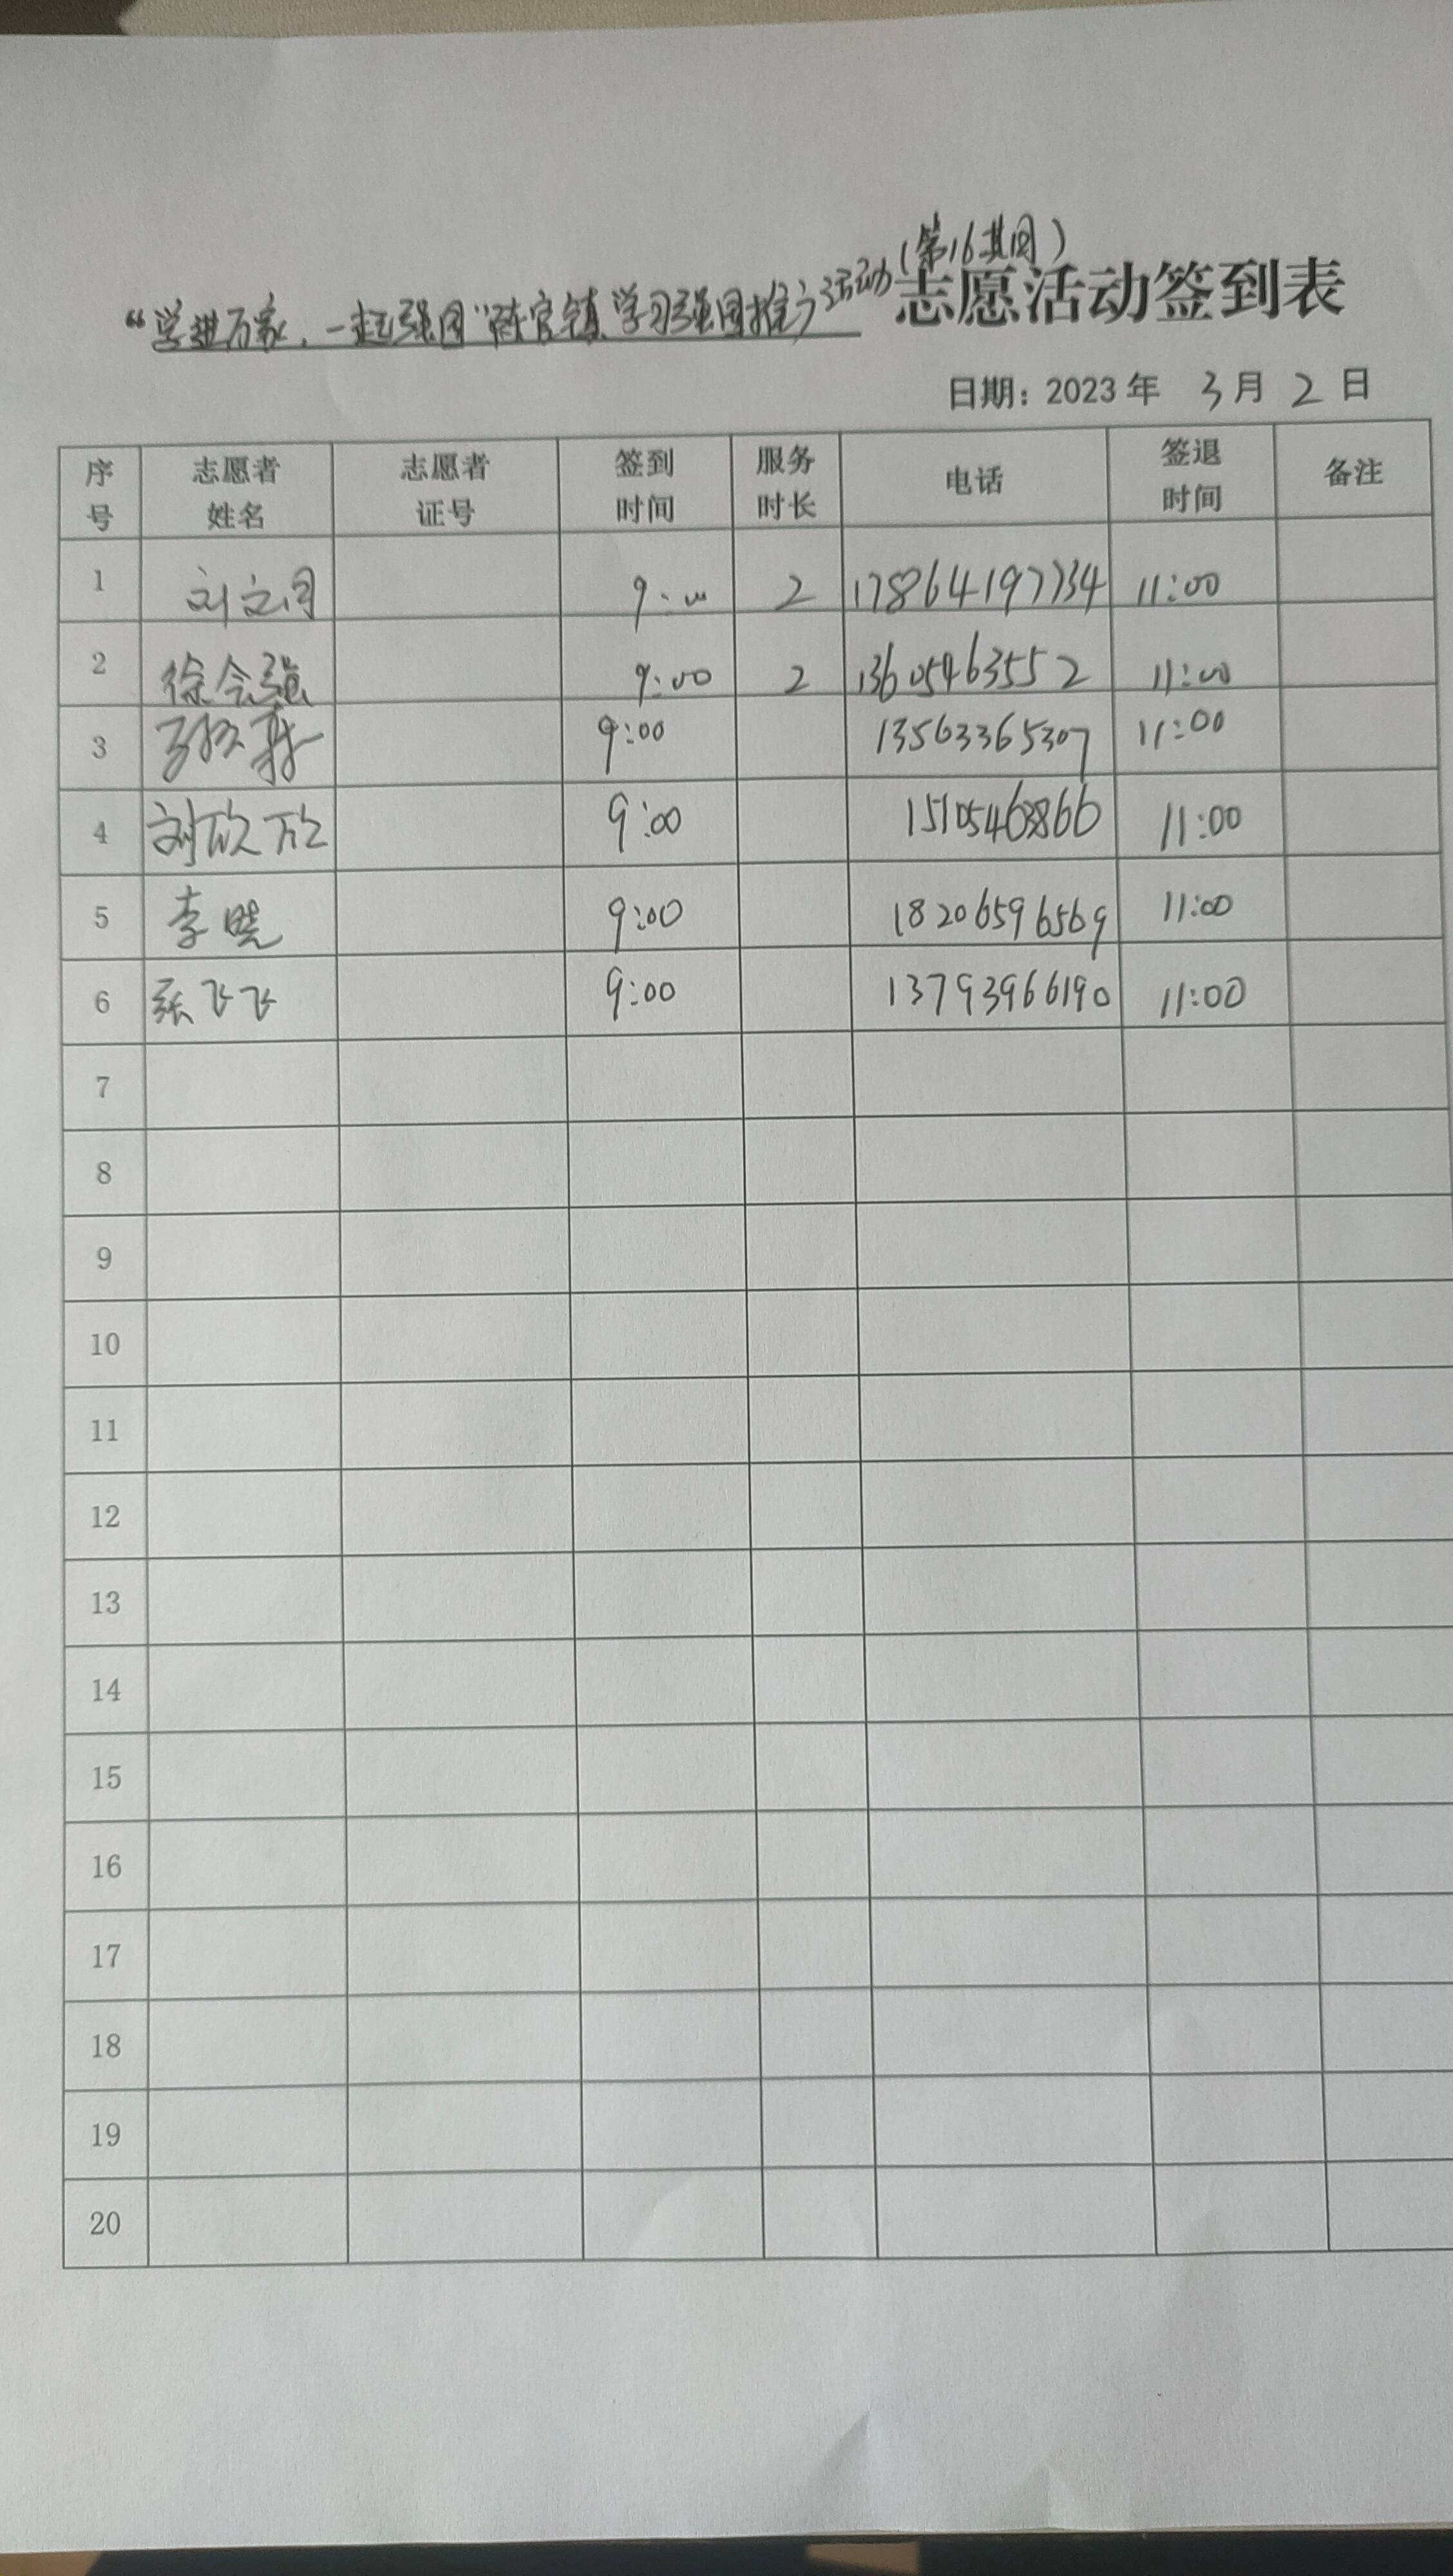 (第16期)
“学进万家，一起强国”陈官镇学习强国推广活动 志愿活动签到表
日期：2023年 3月 2日
序号 志愿者姓名 志愿者证号 签到时间 服务时长 电话 签退时间 备注
1 刘文月 9:00 2 17864197734 11:00
2 徐会强 9:00 2 13605463552 11:00
3 9:00 13563365307 11:00
4 刘欣欣 9:00 11:00
5 李晓 9:00 18206596569 11:00
6 张飞飞 9:00 13793966190 11:00
7
8
9
10
11
12
13
14
15
16
17
18
19
20